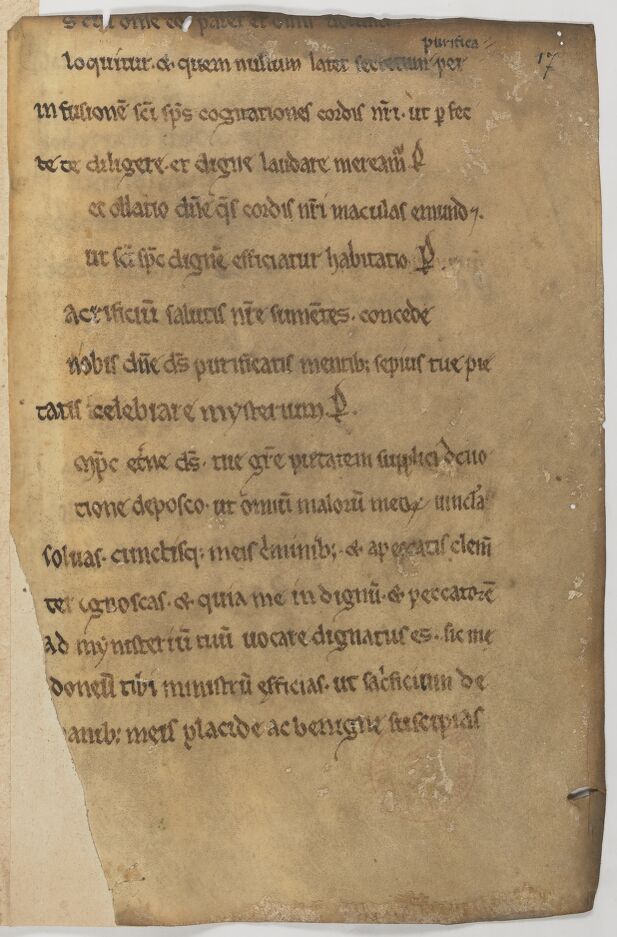 s cui om̄e cor patet et omīs
purifica
17
loquitur. & quem nullum latet secretum per
infusionē sc̄i sp̄s cogitationes cordis nr̄i. ut ꝑfec
te te diligere. et digne laudare mereamur P
ec oblatio dn̄e q̄s cordis nr̄i maculas emund&.
ut sc̄i sp̄c dignē efficiatur habitatio P.
acrificiū salutis nr̄e sumētes. concede
nobis dn̄e ds̄ purificatis mentib; sepius tue pie
tatis celebrare mysterium. P.
mp̄c et̄ne ds̄. tue gr̄e pietatem supplici deuo
tione deposco. ut omiū maloꝝ meoꝝ uincl̄a
soluas. cunctisq; meis c̄minib; & apeccatis clem̄
ter ignoscas. & quia me indignū. & peccatorē
ad mynisteriū tuū uocare dignatus es. sic me
doneū tibi ministrū efficias. ut sacficium de
anib; meis placide ac benigne suscipias